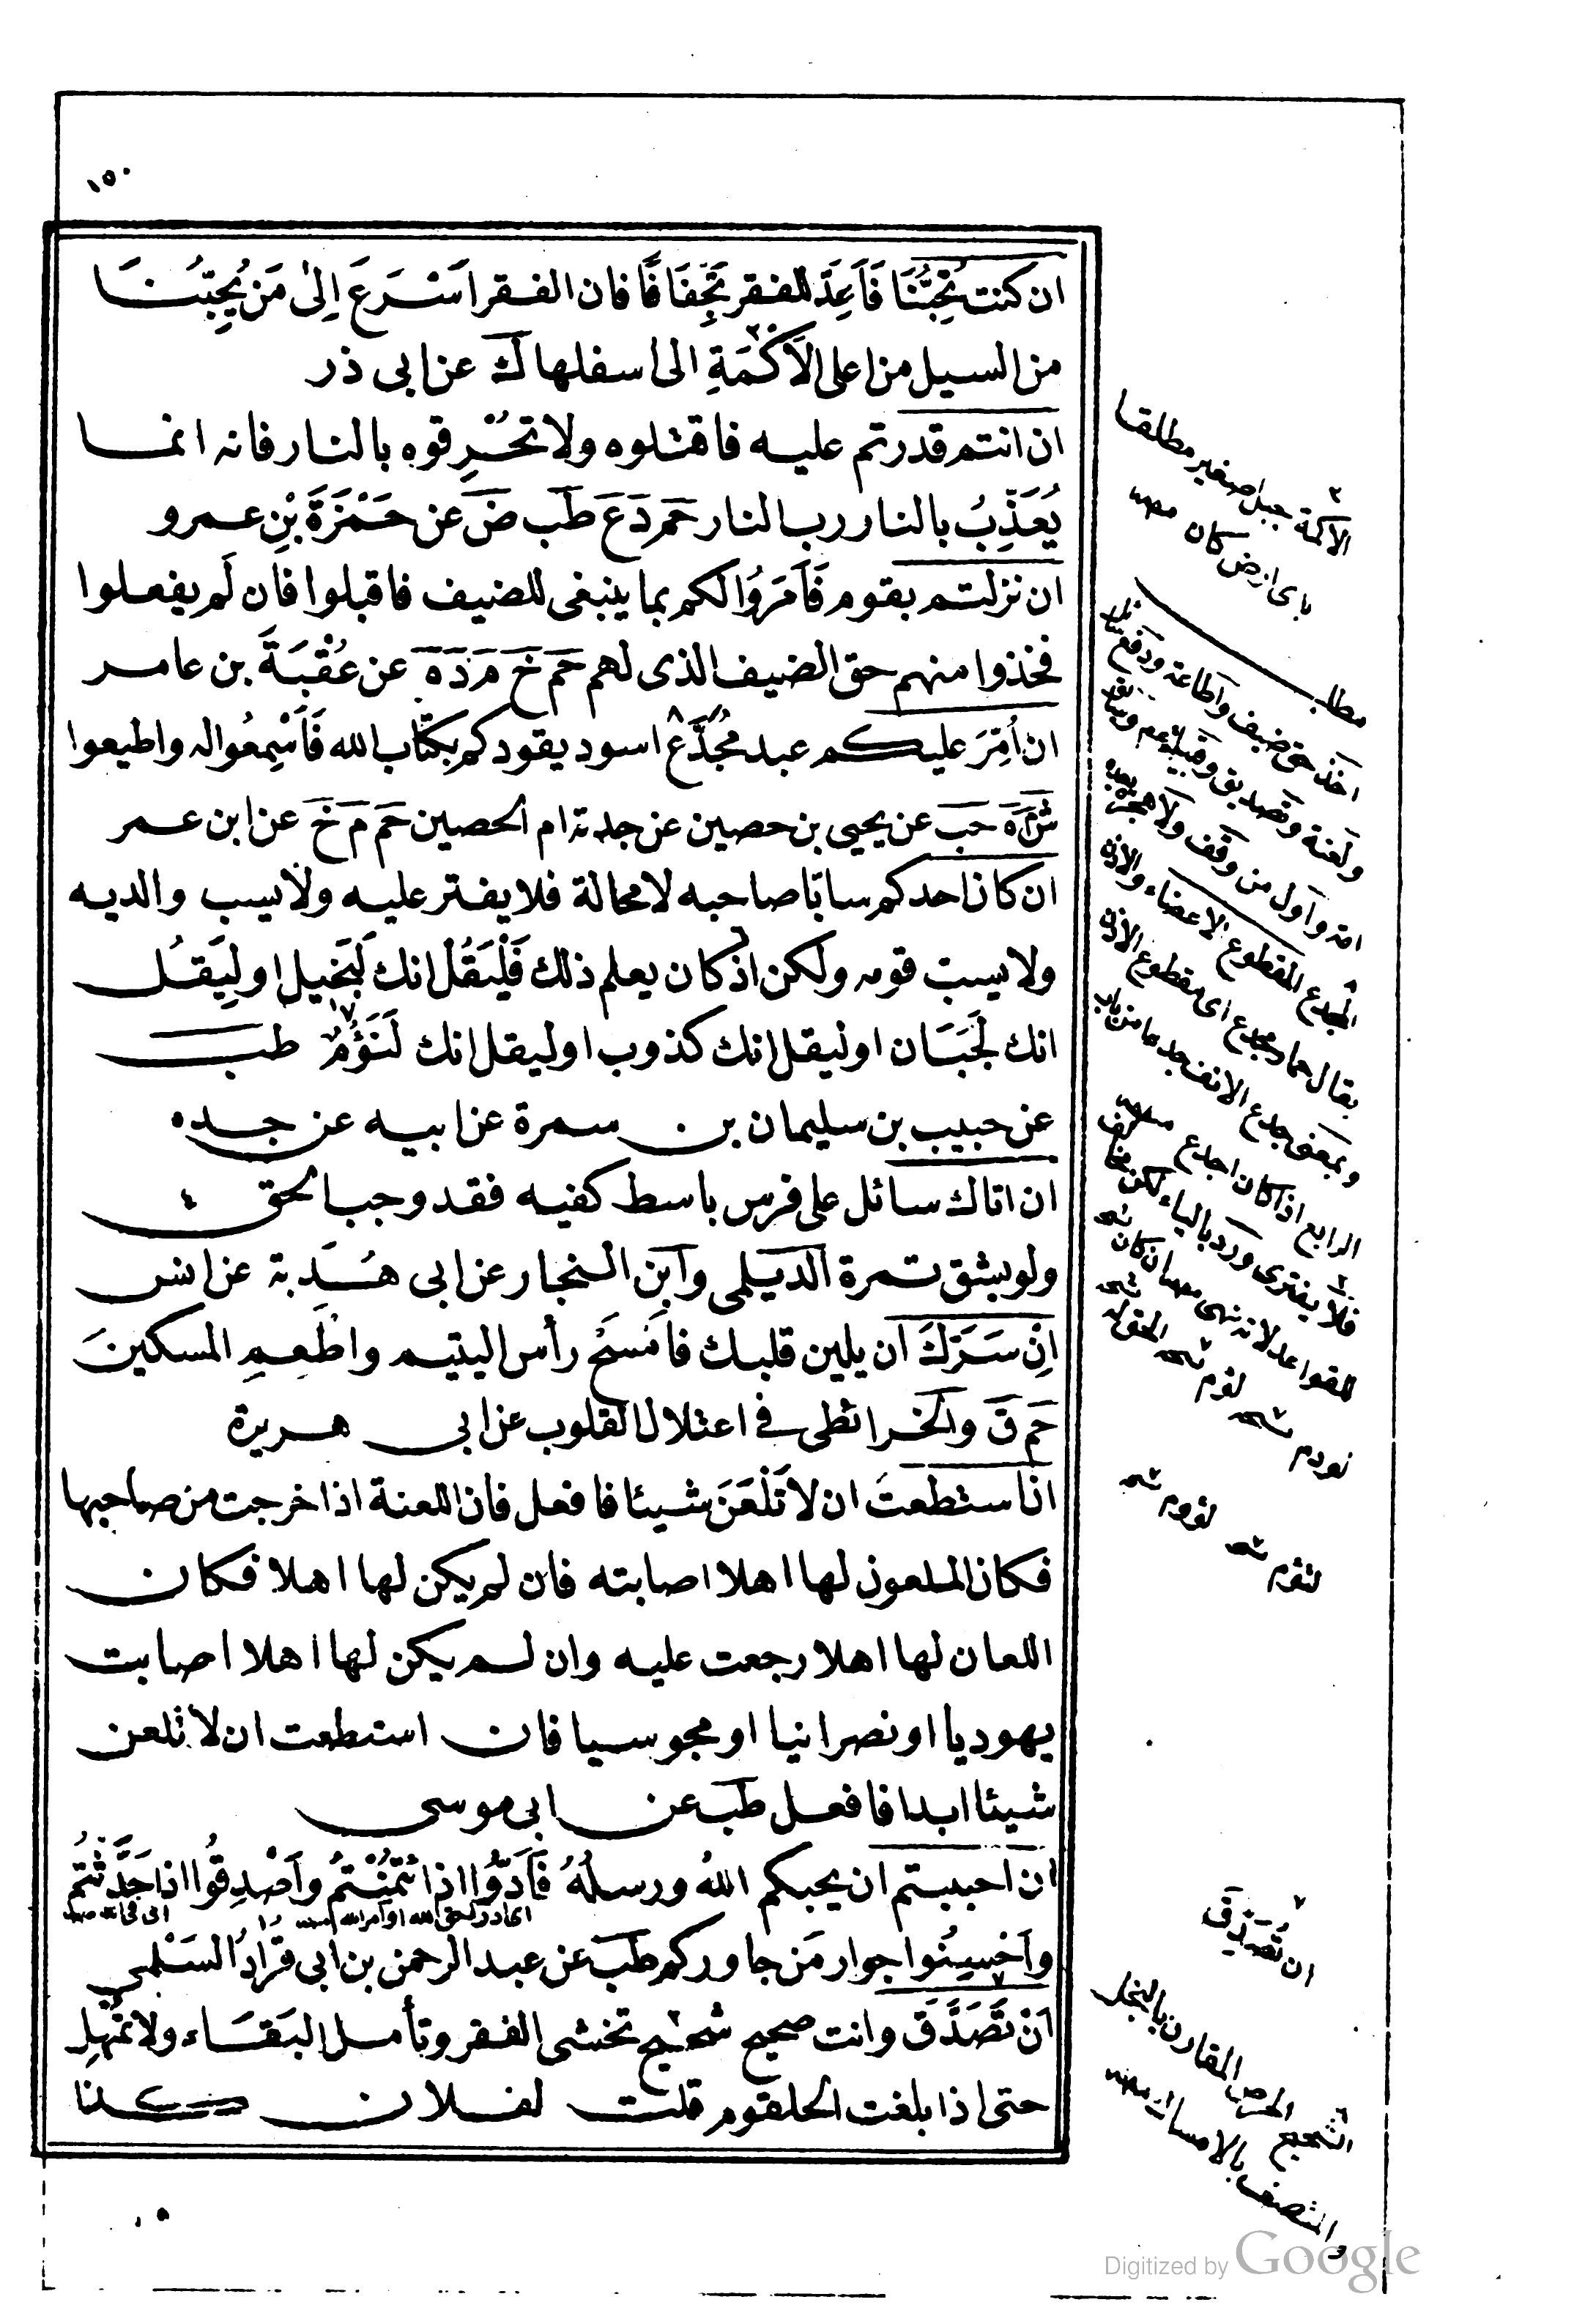 ١٥٠
ان كنت تُحِبُّنَا فَاَعِدَّ للفقر تِجْفَافًا فان الفقر اَسْرَعَ اِلىٰ مَنْ يُحِبُّنَا
من السيل من اعلى الاَكَمَةِ الى اسفلها كَ عن ابى ذر
ان انتم قدرتم عليه فاقتلوه ولا تحْرِقوه بالنار فانه انما
يُعَذِّبُ بالنار رب النار حَم دَ عَ طَب ضَ عن حَمْزَةَ بْنِ عمرو
ان نزلتم بقوم فَاَمَرُوا لكم بما ينبغى للضيف فاقبلوا فان لَم يفعلوا
فخذوا منهم حق الضيف الذى لهم حَم خَ مَ دَ هَ عن عُقْبَةَ بن عامر
ان اُمِّرَ عليكم عبد مُجَدَّع اسود يقودكم بكتاب الله فَاَسْمِعُوا له واطيعوا
ش م هَ حَب عن يحيى بن حصين عن جدته ام الحصين حَم مَ خَ عن ابن عمر
ان كان احدكم سابًّا صاحبه لا محالة فلا يفتر عليه ولا يسب والديه
ولا يسب قومه ولكن اذ كان يعلم ذلك فَلْيَقُلْ انك لَبَخيل او لِيَقُل
انك لَجَبَان او ليقل انك كذوب او ليقل انك لَنَؤُمٌ طب
عن حبيب بن سليمان بن سمرة عن ابيه عن جده
ان اتاك سائل على فرس باسط كفيه فقد وجب الحق
ولو بشق تمرة الديلمى وابن النجار عن ابى هُدْبة عن انس
اِنْ سَرَّكَ ان يلين قلبك فاَمْسَحْ رأس اليتيم واطْعِمِ المسكينَ
حَم قَ والخرائطى فى اعتلال القلوب عن ابى هريرة
ان استطعتَ ان لا تَلْعَنَ شيئا فافعل فان اللعنة اذا خرجت من صاحبها
فكان الملعون لها اهلا اصابته فان لم يكن لها اهلا فكان
اللعان لها اهلا رجعت عليه وان لم يكن لها اهلا اصابت
يهوديا او نصرانيا او مجوسيا فان استطعت ان لا تلعن
شيئا ابدا فافعل طب عن ابى موسى
ان احببتم ان يحبكم اللهُ ورسولُهُ فَاَدُّوا اذا ئْتُمِنْتُمْ واَصْدِقُوا اذا حَدَّثْتُم
واَحْسِنُوا جوار مَن جاوركم طب عن عبد الرحمن بن ابى قُرَادُ السَلْمى
اَنْ تَصَدَّقَ وانت صحيح شحيح تخشى الفقر وتأمل البَقَاء ولا تُمْهِلِ
حتى اذا بلغت الحلقوم قلت لفلان كذا
الاكمة جبل صغير مطلقا
باى ارض كان
مطلب
اخذ حق ضيف واطاعة
المجدع المقطوع الاعضاء والاذن
يقال حمار مجدع اى مقطوع الاذن
الرابع اذا كان اجدع
فلا يفترى ورد بالياء لكن
ان تصدق
الشحيح الحرص المقارن بالبخل
والمتصف بالامساك
Digitized by Google